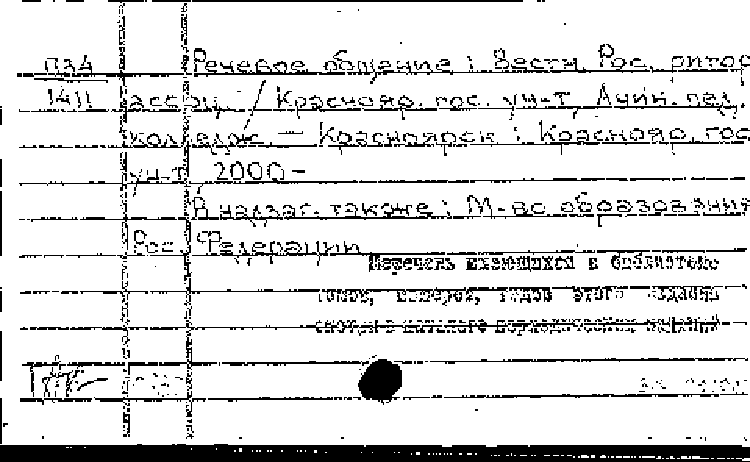 П34 Речевое общение : Вестн. Рос. ритор
1411 ассоц. / Краснояр. гос. ун-т, Ачин. пед.
колледж. – Красноярск : Краснояр. гос
ун-т, 2000 –
В надзаг. также : М-во образования
Рос. Федерации
Перечень имеющихся в библиотеке
томов, номеров, годов этого издания
смотри в каталоге периодических изданий